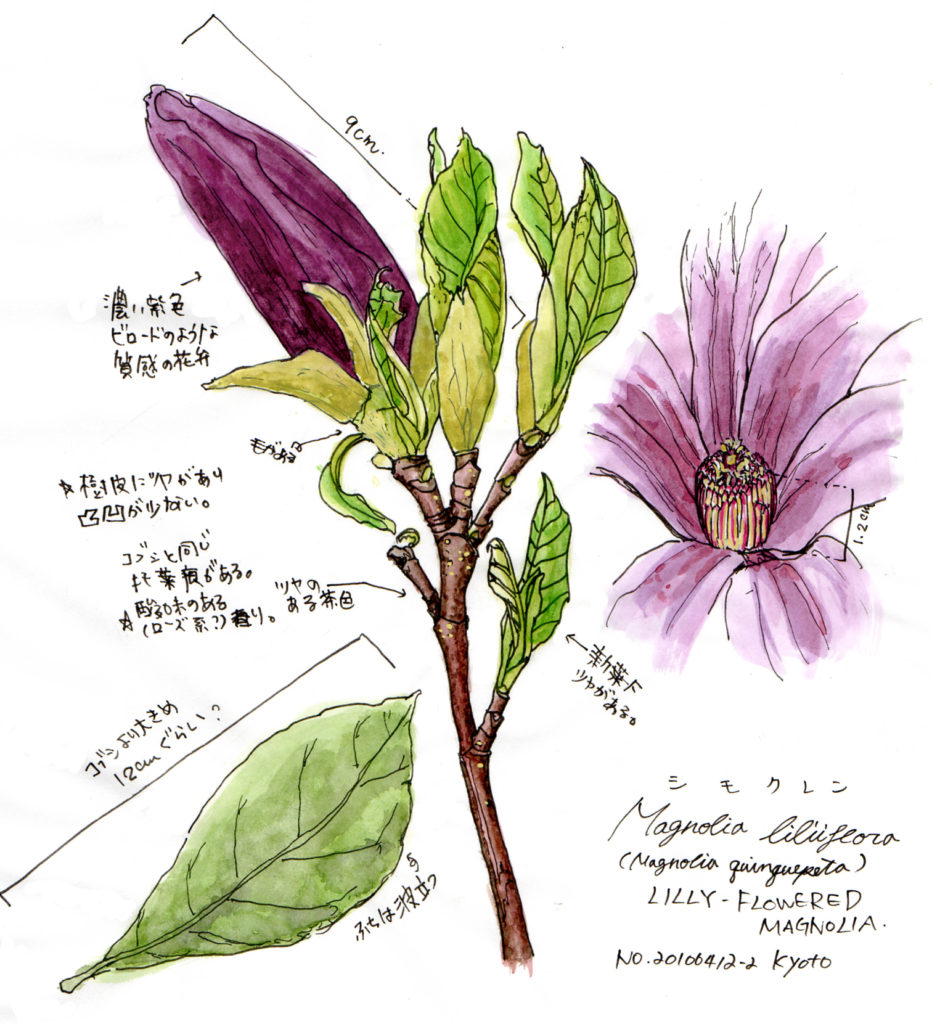 9cm.
濃い紫色
ビロードのような
質感の花弁
毛がある
☆樹皮にツヤがあり
凸凹が少ない。
コブシと同じ
托葉痕がある。
☆酸味のある
(ローズ系?)香り。
ツヤの
ある茶色
1.2cm
←新葉に
ツヤがある。
コブシより大きめ
12cmぐらい?
ふちは波立つ
シモクレン
Magnolia liliiflora
(Magnolia quinquepeta)
LILLY-FLOWERED
MAGNOLIA.
NO.20100412-2 Kyoto